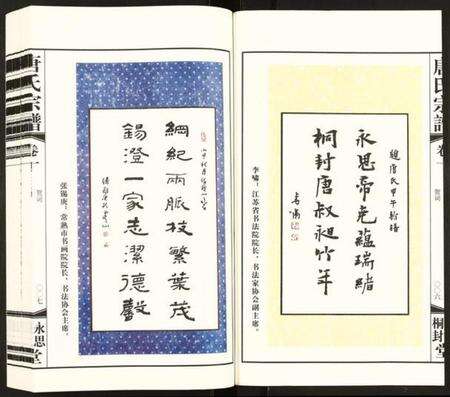 唐氏宗譜
卷一
賀词
○○六
桐封堂
題唐氏甲午新譜
永思帝堯蘊瑞緒
桐封唐叔昶竹年
李啸：江苏省书法院院长、书法家协会副主席。
綱紀兩脈枝繁葉茂
錫澄一家志潔德馨
张锡庚：常熟市书画院院长、书法协会主席。
唐氏宗譜
卷一
賀词
○○七
永思堂